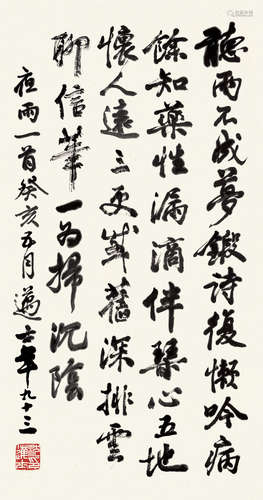 聽雨不成夢鍛詩復懶吟病
餘知藥性漏滴伴琴心五地
懷人遠三更感舊深排雲
聊信筆一為掃沉陰
夜雨一首癸亥五月邁士年九十三